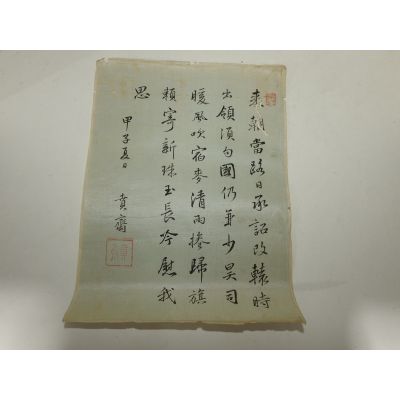 來朝當路日承詔改轅時
出領須句國仍兼少昊司
暖風吹宿麥清雨摻歸旗
賴寄新珠玉長吟慰我
思
甲子夏日
賁齋